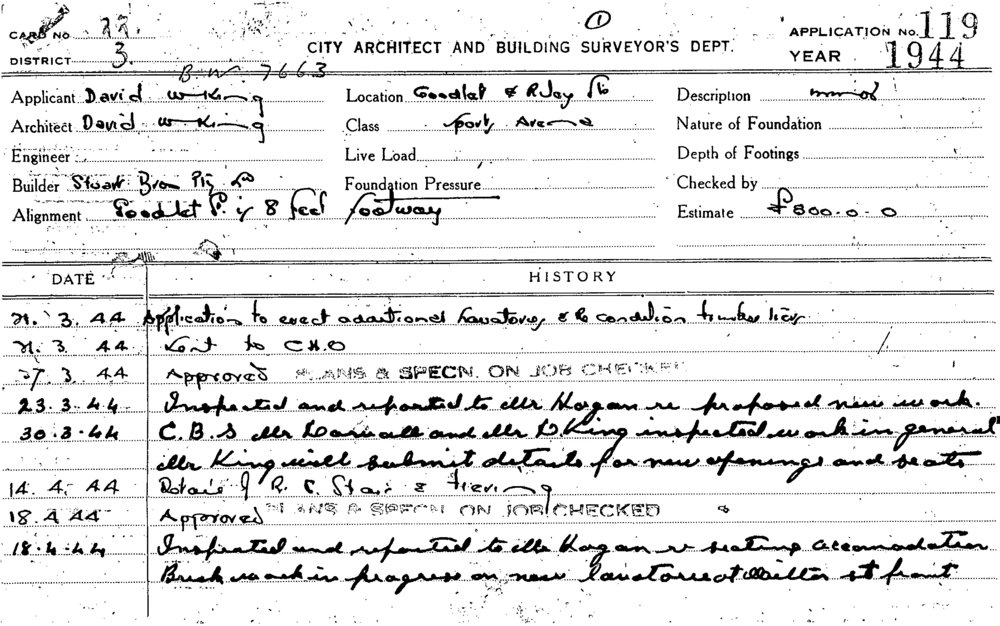 1
CARD NO. 22.
DISTRICT 3.
CITY ARCHITECT AND BUILDING SURVEYOR'S DEPT.
APPLICATION NO. 119
YEAR 1944
B.W. 7663
Applicant David W King
Location Goodlet &
Description minor
Architect David W King
Class Sports Arena
Nature of Foundation
Engineer
Live Load
Depth of Footings
Builder Stuart Bros Pty Ld
Foundation Pressure
Checked by
Alignment Goodlet St. is 8 feet footway
Estimate £800.0.0
DATE
HISTORY
21. 3. 44 Application to erect additional Lavatories & Re condition timber tiers
21. 3. 44 Sent to C.H.O
27. 3. 44 Approved PLANS & SPECN. ON JOB CHECKED
23.3.44 Inspected and reported to Mr Hogan re proposed new work.
30.3.44 C.B.S Mr and Mr D King inspected work in general
Mr King will submit details for new openings and seats
14. 4. 44 Details of R. C. Stair & Tiering
18.4.44 Approved PLANS & SPECN ON JOB CHECKED
18.4.44 Inspected and reported to Mr Hogan re seating accomodation
Brick work in progress on new lavatories at St front